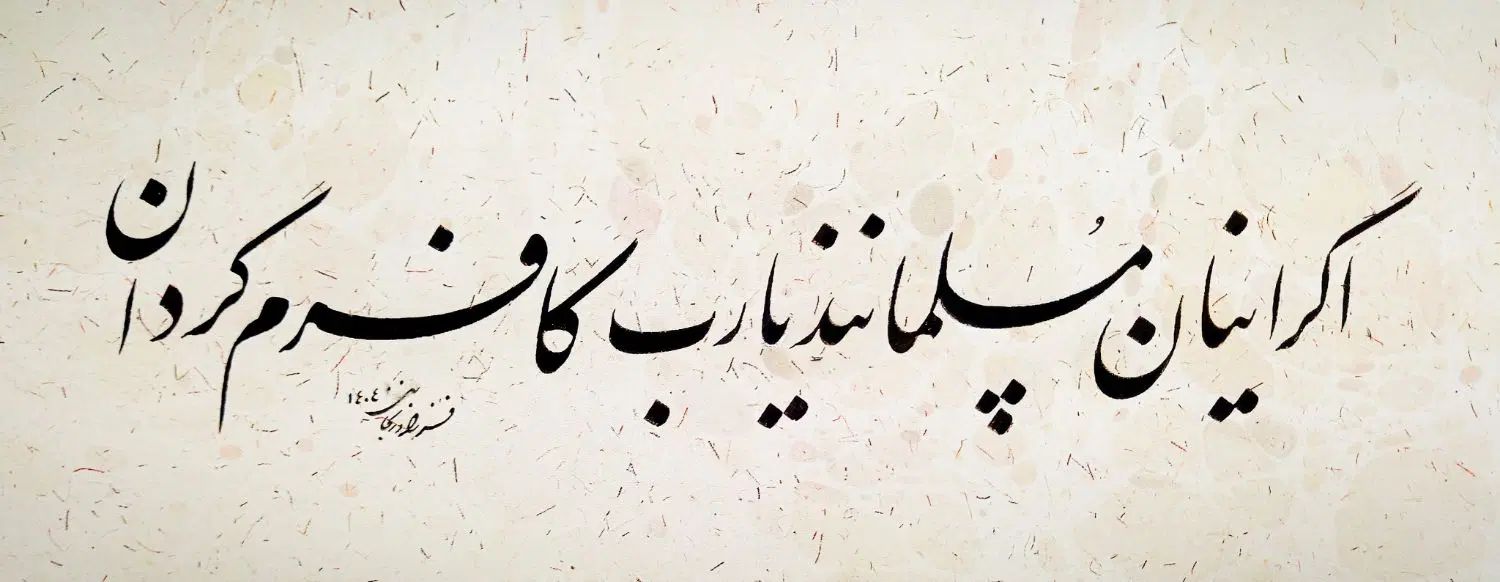 اگر اینان مُسلمانند یارب کافرم گردان
۱۴۰۴